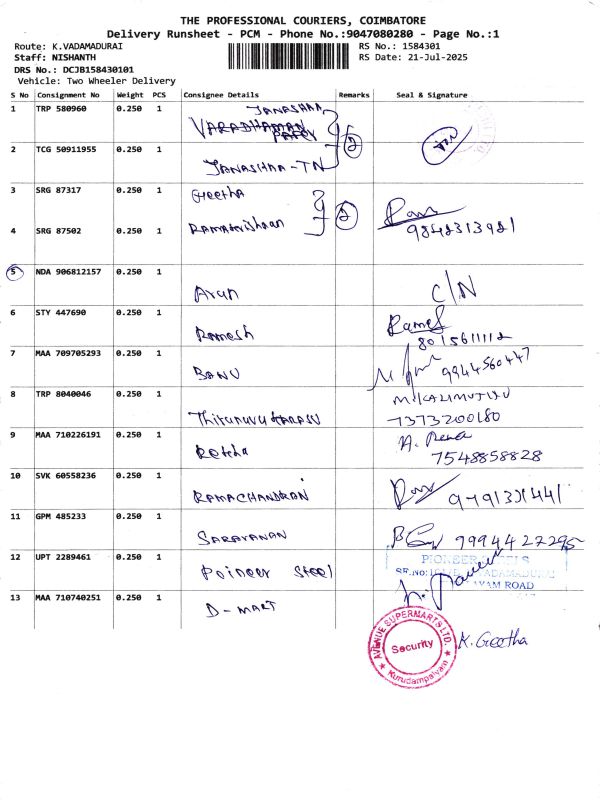 THE PROFESSIONAL COURIERS, COIMBATORE
Delivery Runsheet - PCM - Phone No.:9047080280 - Page No.:1
Route: K.VADAMADURAI
RS No.: 1584301
Staff: NISHANTH
RS Date: 21-Jul-2025
DRS No.: DCJB158430101
Vehicle: Two Wheeler Delivery
S No Consignment No Weight PCS Consignee Details Remarks Seal & Signature
1 TRP 580960 0.250 1 JANASHAA
VARADHAMAN
2
2 TCG 50911955 0.250 1
JANASHAA-TN
3 SRG 87317 0.250 1 Geetha
2
4 SRG 87502 0.250 1 Ramakrishnan
9842313981
5 NDA 906812157 0.250 1
Arun C/N
6 STY 447690 0.250 1
Ramesh Ramesh
8015611112
7 MAA 709705293 0.250 1
BANU 9944560447
8 TRP 8040046 0.250 1
7373200180
9 MAA 710226191 0.250 1
Rekha
7548858828
10 SVK 60558236 0.250 1
RAMACHANDRAN 9791331441
11 GPM 485233 0.250 1
SARAVANAN 9994427295
12 UPT 2289461 0.250 1
Poineer Steel
PIONEER
13 MAA 710740251 0.250 1
D-MART
AVENUE SUPERMARTS LTD.
Security
Kurudampalyam
K. Geetha